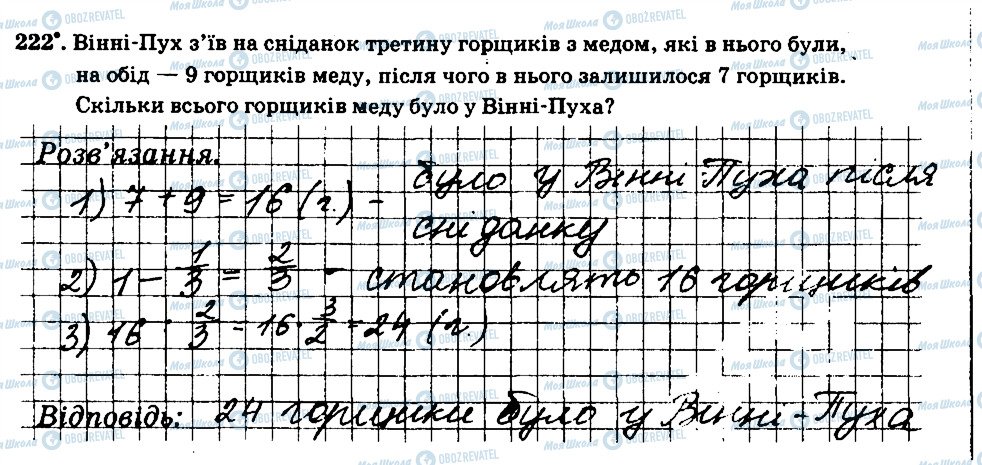 222°. Вінні-Пух з’їв на сніданок третину горщиків з медом, які в нього були,
на обід — 9 горщиків меду, після чого в нього залишилося 7 горщиків.
Скільки всього горщиків меду було у Вінні-Пуха?
Розв’язання.
1) 7 + 9 = 16 (г.) – було у Вінні Пуха після
сніданку
2) 1 – 1/3 = 2/3 – становлять 16 горщиків
3) 16 : 2/3 = 16 · 3/2 = 24 (г.)
Відповідь: 24 горщики було у Вінні-Пуха